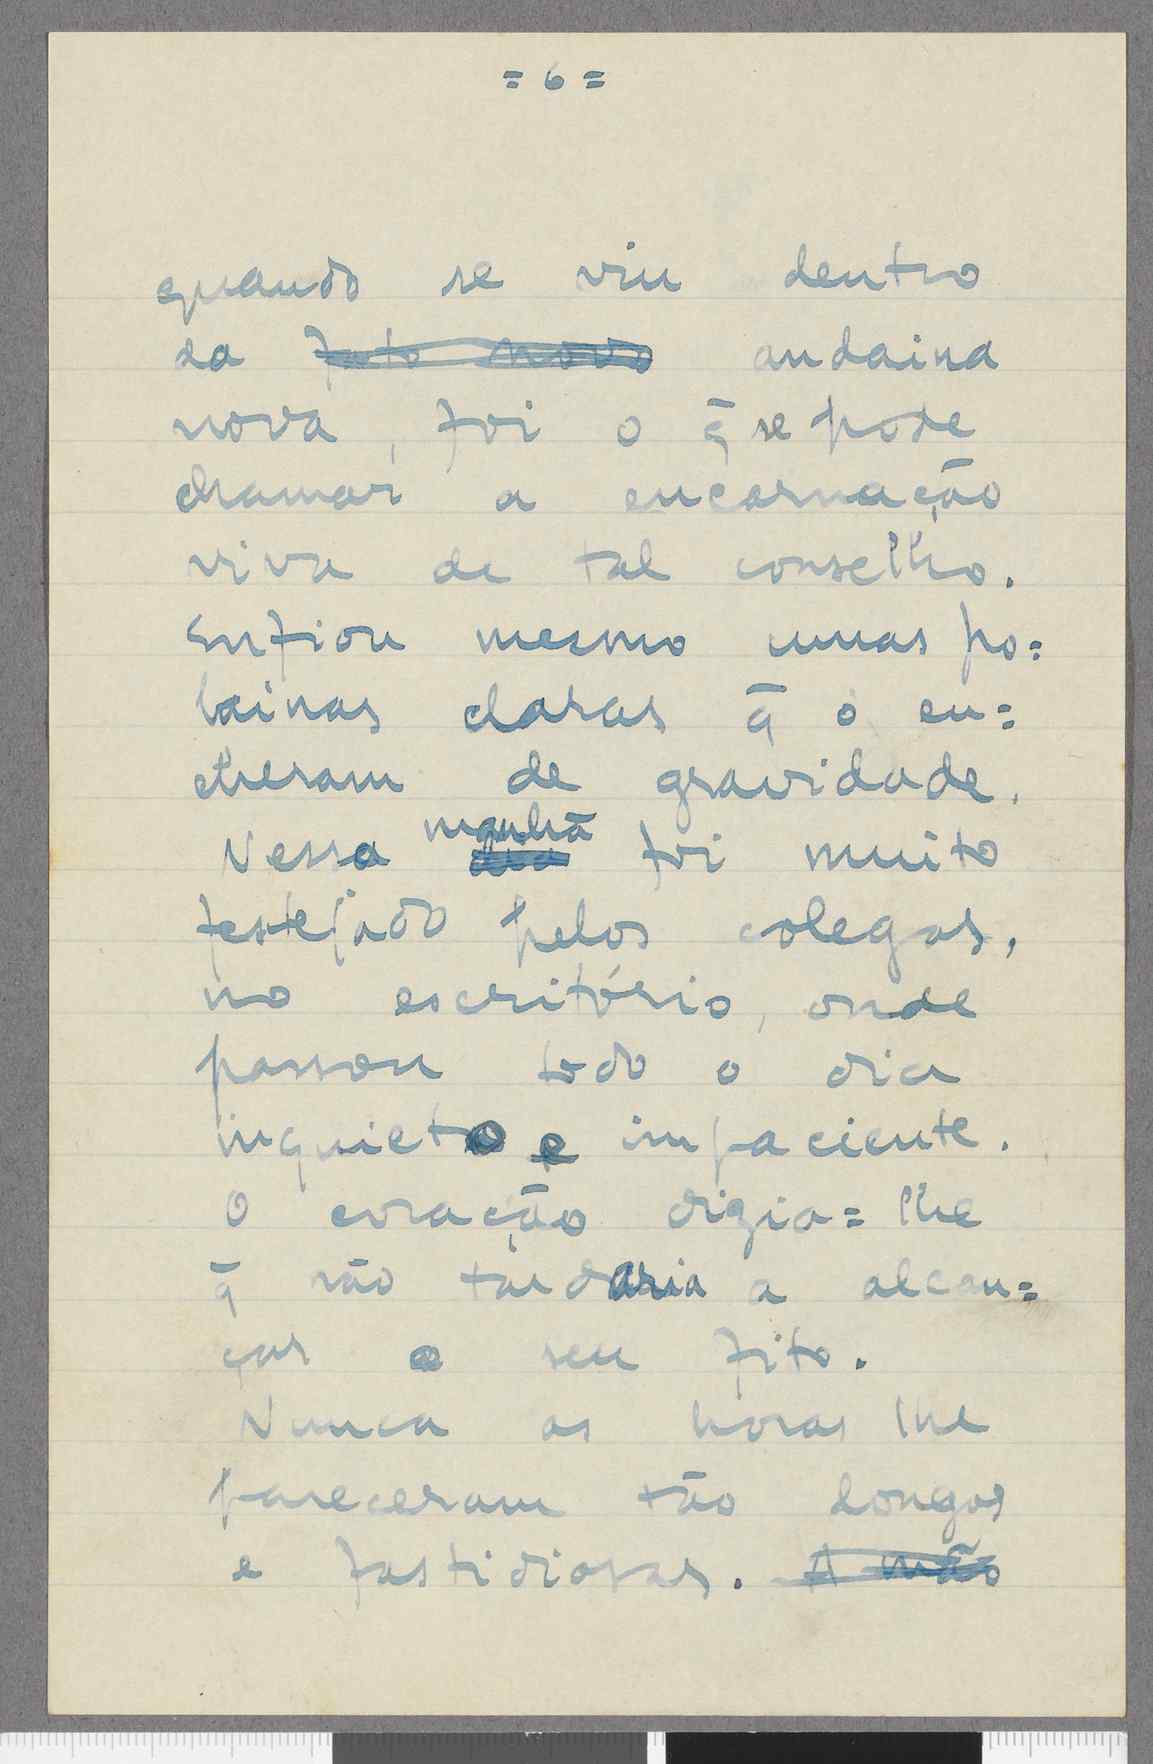 = 6 =
quando se viu dentro
da fato novo andaina
nova, foi o q̄ se pode
chamar a encarnação
viva de tal conselho.
Enfiou mesmo umas po=
lainas claras q̄ o en=
cheram de gravidade.
Nessa dia manhã foi muito
festejado pelos colegas,
no escritório, onde
passou todo o dia
inquieto e impaciente.
O coração dizia=lhe
q̄ não tardaria a alcan=
çar o seu fito.
Nunca as horas lhe
pareceram tão longas
e fastidiosas. A mão